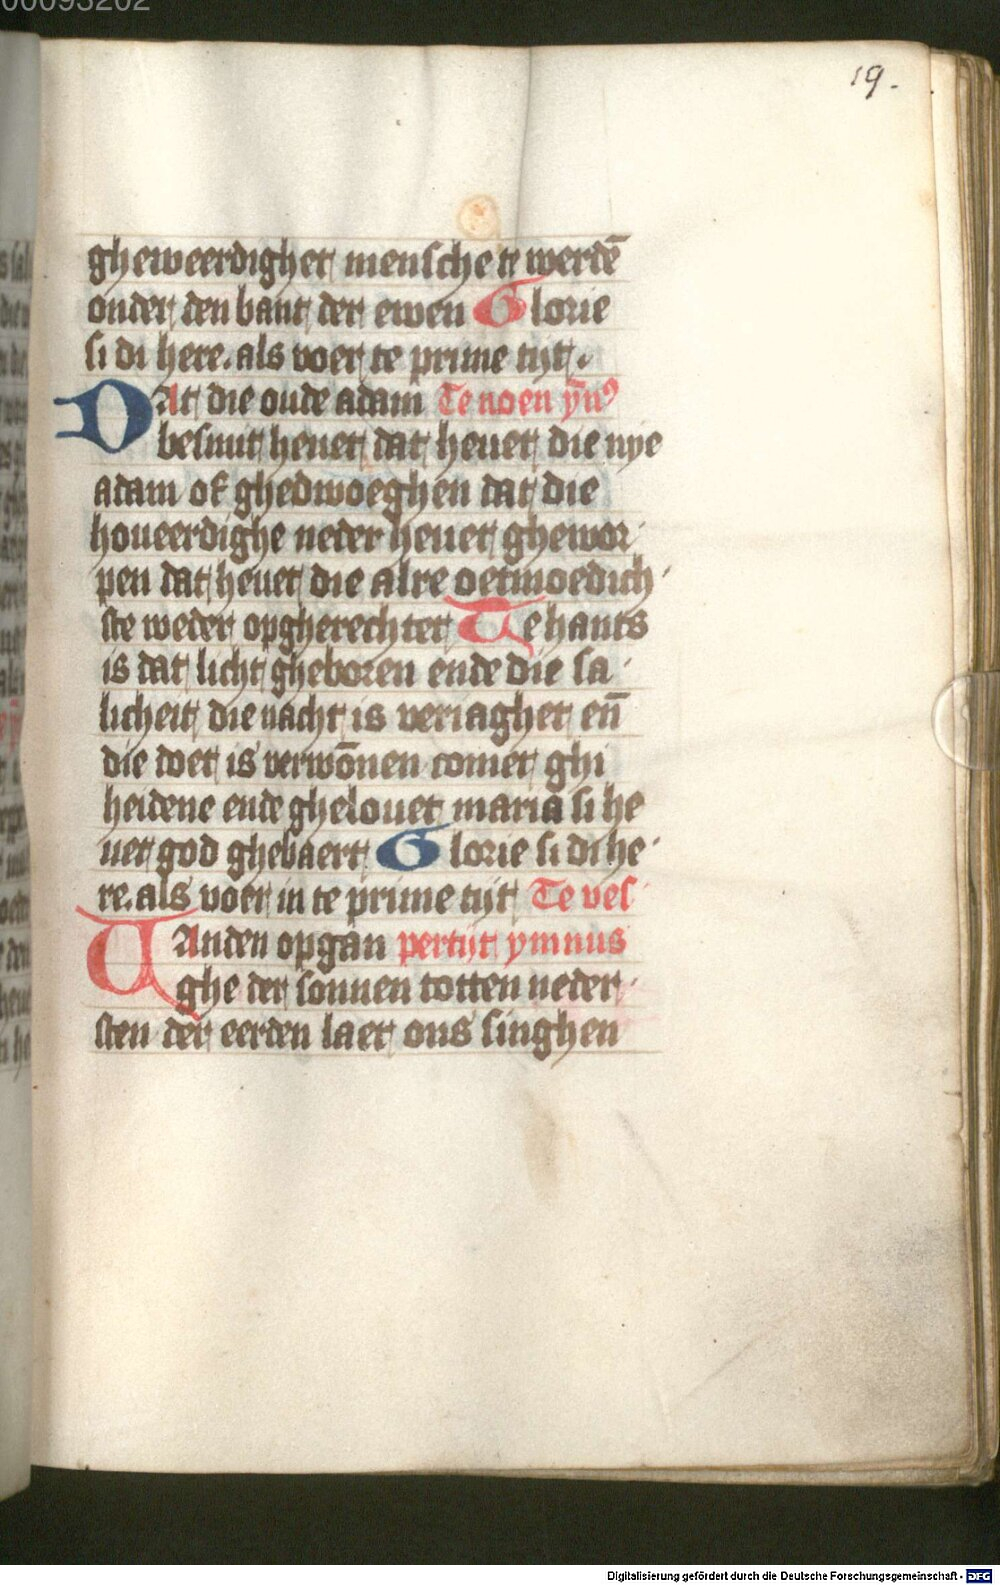 00093202
19.
gheweerdighet mensche te werdē
onder den bant der ewen Glorie
si di here. als voer te prime tijt.
DAt die oude adam Te noen ȳn⁹
besmit heuet dat heuet die nye
adam of ghedwoeghen dat die
houeerdighe neder heuet ghewor
pen dat heuet die alre oetmoedich
ste weder opgherechtet Te hants
is dat licht gheboren ende die sa
licheit die nacht is veriaghet en̄
die doet is verwōnen comet ghi
heidene ende ghelouet maria si he
uet god ghebaert Glorie si di he
re. als voer in te prime tijt Te ves
UAnden opgan pertijt ymnus
ghe der sonnen totten neder
sten der eerden laet ons singhen
Digitalisierung gefördert durch die Deutsche Forschungsgemeinschaft - DFG